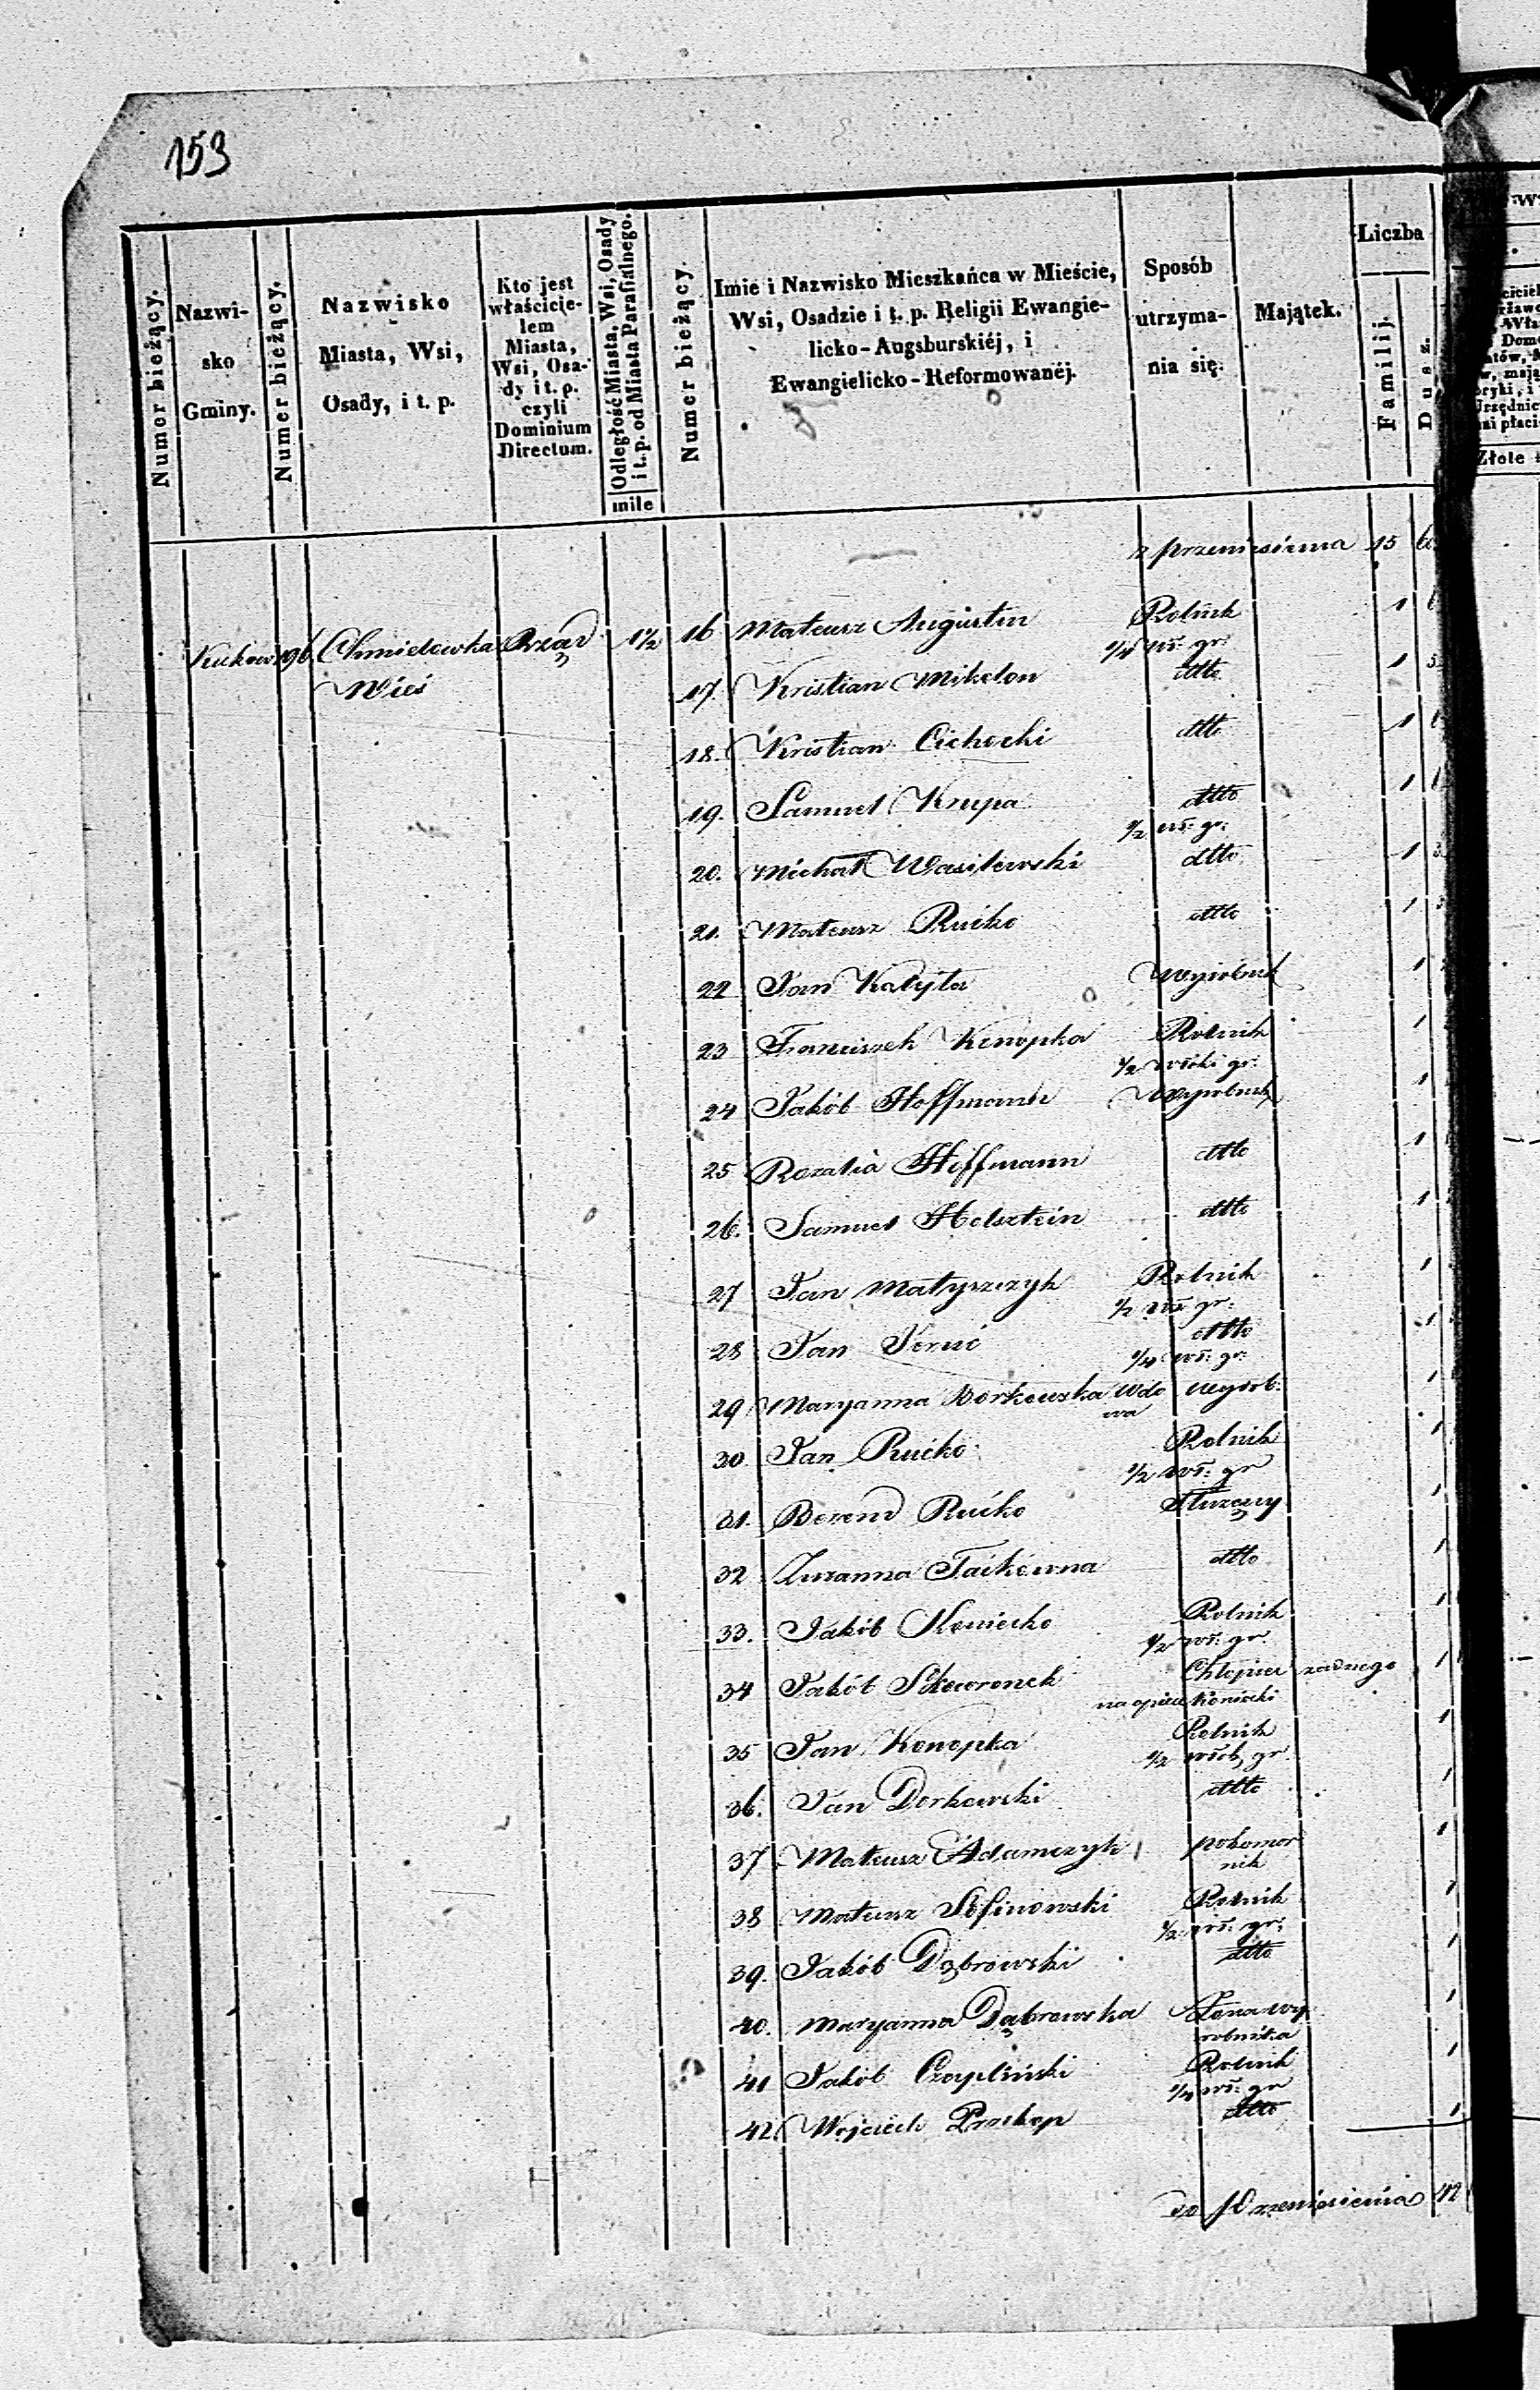 153
Numer bieżący.
Nazwi-
sko
Gminy.
Numer bieżący.
Nazwisko
Miasta, Wsi,
Osady, i t. p.
Kto jest
właścicie-
lem
Miasta,
Wsi, Osa-
dy i t. p.
czyli
Dominium
Directum.
Odległość Miasta, Wsi, Osady
i t. p. od Miasta Parafialnego.
mile
Numer bieżący.
Imie i Nazwisko Mieszkańca w Mieście,
Wsi, Osadzie i t. p. Religii Ewangie-
licko-Augsburskiéj, i
Ewangielicko-Reformowanéj.
Sposób
utrzyma-
nia się.
Majątek.
Liczba
Familij.
Dusz.
z przeniesienia 15
Kukow 196 Chmielewka Rząd 1½ 16 Mateusz Augustin Rolnik 1
Wieś
¼ wł: gr:
17. Kristian Mikolon dtto 1
18. Kristian Cichocki dtto 1
19. Samuel Krupa dtto 1
½ wł: gr:
20. Michał Wasilewski dtto 1
21. Mateusz Rućko dtto 1
22 Jan Kałyta Wyrobnik 1
23 Franciszek Konopka Rolnik 1
½ włóki gr:
24 Jakób Hoffmann Wyrobnik 1
25 Rozalia Hoffmann dtto 1
26. Samuel Holsztein dtto 1
27 Jan Matyszczyk Rolnik 1
½ wł gr:
28 Jan Jeruć dtto 1
¼ wł: gr:
29 Maryanna Borkowska wdo wyrob: 1
wa
30 Jan Rućko Rolnik 1
½ wł: gr
31. Berend Rućko Służący 1
32 Zuzanna Taikówna dtto 1
33. Jakób Koniecko Rolnik 1
½ wł: gr.
34 Jakób Skowronek Chłopiec żadnego 1
na opiece Koniecki
35 Jan Konopka Rolnik 1
½ włók gr
36. Jan Dorkowski dtto 1
37 Mateusz Adamczyk pokomor 1
nik
38 Mateusz Sofinowski Rolnik 1
½ wł: gr:
39. Jakób Dąbrowski dtto 1
40. Maryanna Dąbrowska Żona wy 1
robnika
41 Jakób Czapliński Rolnik 1
¼ wł: gr
42. Wojciech Proskop dtto 1
do Przeniesienia 42